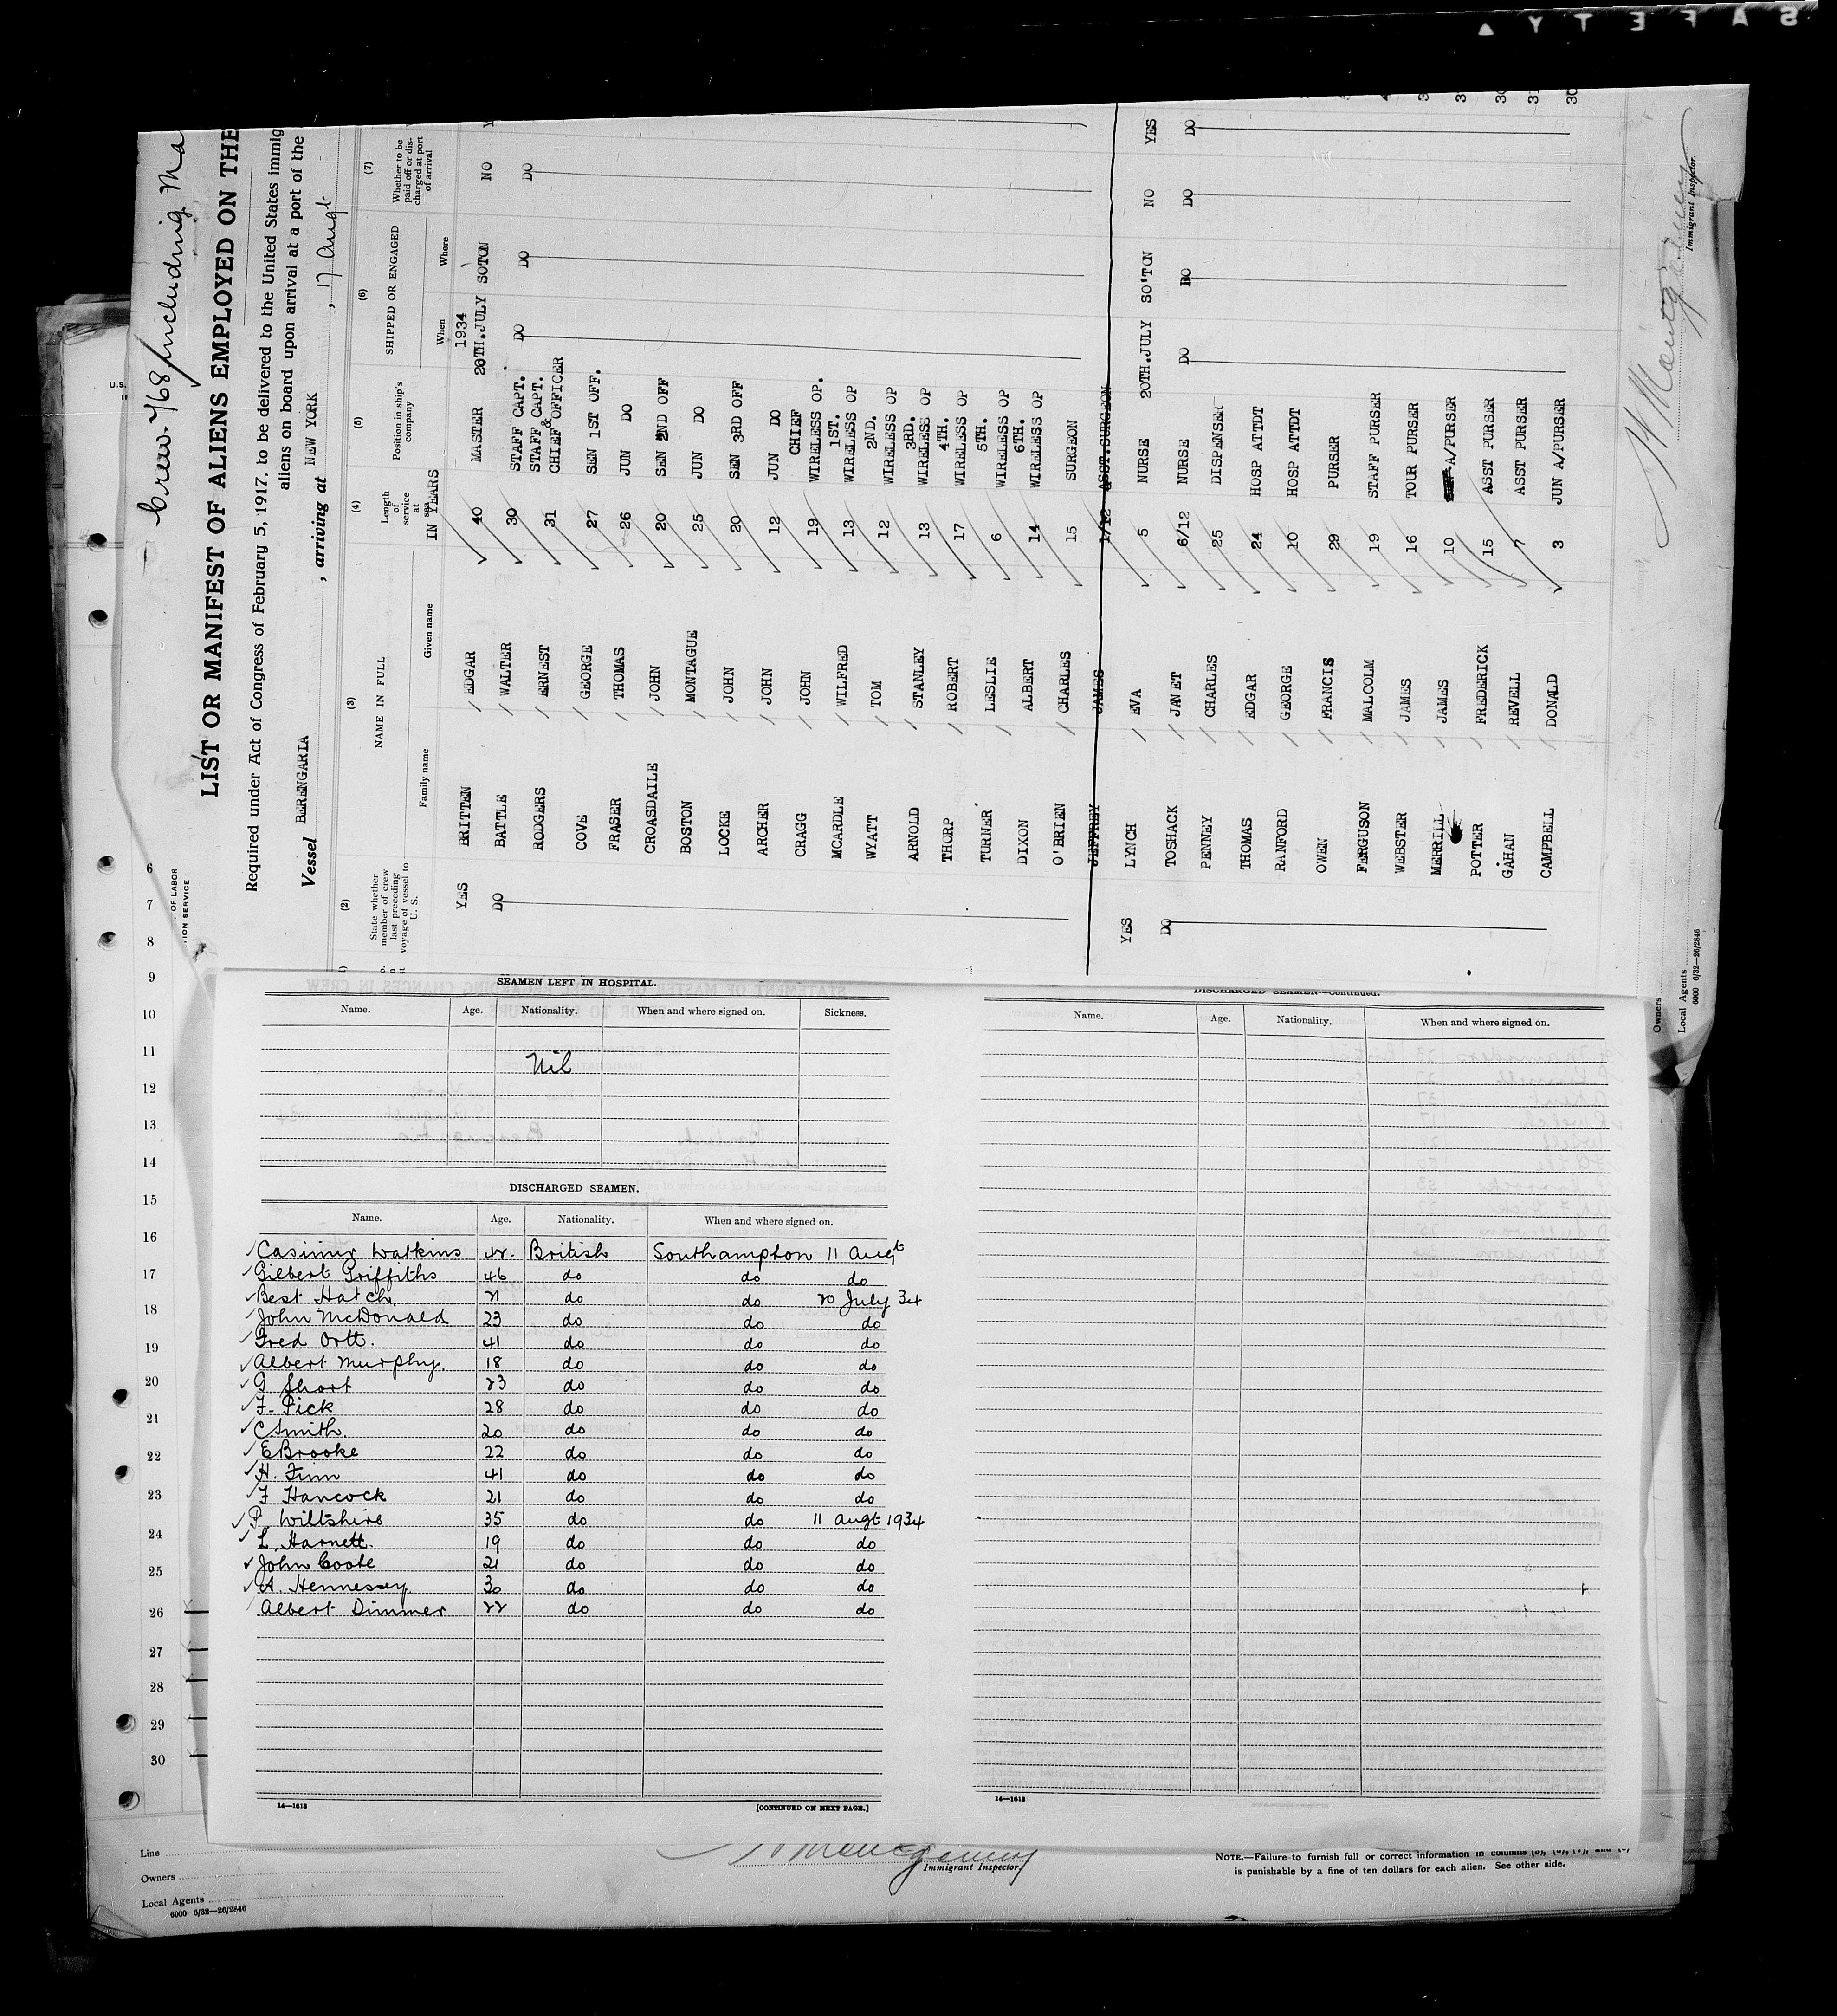 SAFETY
Crew. 768 / including Ma
LIST OR MANIFEST OF ALIENS EMPLOYED ON THE
Required under Act of Congress of February 5, 1917, to be delivered to the United States immig
aliens on board upon arrival at a port of the
Vessel BERENGARIA , arriving at NEW YORK , 17 Augt
(2) (3) (4) (5) (6) (7)
State whether member of crew last preceding voyage of vessel to U. S. NAME IN FULL Length of service at sea Position in ship's company SHIPPED OR ENGAGED Whether to be paid off or discharged at port of arrival
Family name Given name IN YEARS When Where
1934
YES BRITTEN EDGAR 40 MASTER 20TH.JULY SOTON NO
DO BATTLE WALTER 30 STAFF CAPT. DO DO DO
RODGERS ERNEST 31 STAFF CAPT. & CHIEF OFFICER
COVE GEORGE 27 SEN 1ST OFF.
FRASER THOMAS 26 JUN DO
CROASDAILE JOHN 20 SEN 2ND OFF
BOSTON MONTAGUE 25 JUN DO
LOCKE JOHN 20 SEN 3RD OFF
ARCHER JOHN 12 JUN DO
CRAGG JOHN 19 CHIEF WIRELESS OP.
MCARDLE WILFRED 13 1ST. WIRELESS OP
WYATT TOM 12 2ND. WIRELESS OP
ARNOLD STANLEY 13 3RD. WIRELESS OP
THORP ROBERT 17 4TH. WIRELESS OP
TURNER LESLIE 6 5TH. WIRELESS OP
DIXON ALBERT 14 6TH. WIRELESS OP
O'BRIEN CHARLES 15 SURGEON
JEFFREY JAMES 1/12 ASST.SURGEON
YES LYNCH EVA 5 NURSE 20TH.JULY SO'TON NO YES
DO TOSHACK JANET 6/12 NURSE DO DO DO DO
PENNEY CHARLES 25 DISPENSER
THOMAS EDGAR 24 HOSP ATTDT
RANFORD GEORGE 10 HOSP ATTDT
OWEN FRANCIS 29 PURSER
FERGUSON MALCOLM 19 STAFF PURSER
WEBSTER JAMES 16 TOUR PURSER
MERRILL JAMES 10 A/PURSER
POTTER FREDERICK 15 ASST PURSER
GAHAN REVELL 7 ASST PURSER
CAMPBELL DONALD 3 JUN A/PURSER
Immigrant Inspector.
Owners
Local Agents
6000 6/32—26/2846
U.S.
OF LABOR
TION SERVICE
6
7
8
9
10
11
12
13
14
15
16
17
18
19
20
21
22
23
24
25
26
27
28
29
30
SEAMEN LEFT IN HOSPITAL.
Name. Age. Nationality. When and where signed on. Sickness.
Nil
DISCHARGED SEAMEN.
Name. Age. Nationality. When and where signed on.
Casimir Watkins 42. British Southampton 11 Augt
Gilbert Griffiths 46 do do do
Best Hatch 21 do do 20 July 34
John McDonald 23 do do do
Fred Ortt. 41 do do do
Albert Murphy. 18 do do do
G Short 23 do do do
F. Pick 28 do do do
C Smith 20 do do do
E Brooke 22 do do do
H. Finn 41 do do do
F Hancock 21 do do do
P. Wiltshire 35 do do 11 Augt 1934
L. Harnett. 19 do do do
John Coote 21 do do do
A. Hennessey 30 do do do
Albert Dimmer 22 do do do
14—1613 [CONTINUED ON NEXT PAGE.]
DISCHARGED SEAMEN—Continued.
Name. Age. Nationality. When and where signed on.
14—1613
Line
Owners
Local Agents
6000 6/32—26/2846
Immigrant Inspector.
NOTE.—Failure to furnish full or correct information in columns (5), (6), (7), and (8)
is punishable by a fine of ten dollars for each alien. See other side.